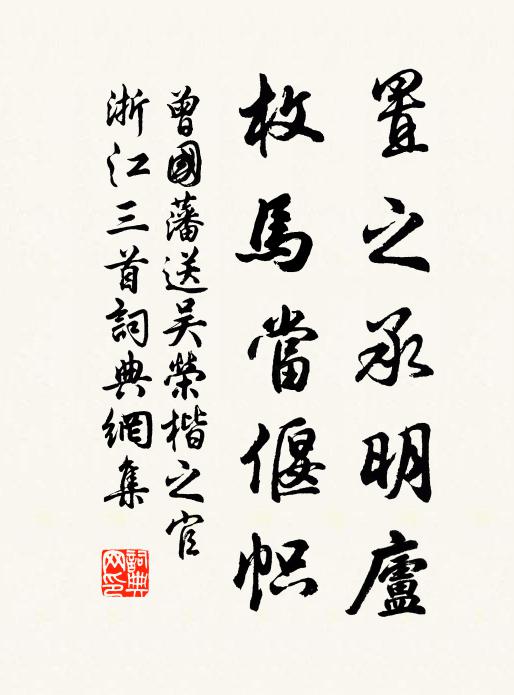 置之承明廬
枚馬當偃幟
曾國藩送吴榮楷之官
浙江三首詞典網集
詞典網印